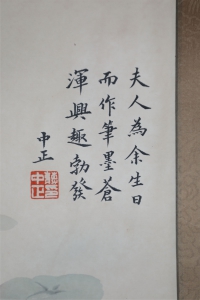 夫人為余生日
而作筆墨蒼
渾興趣勃發
中正
蔣中正